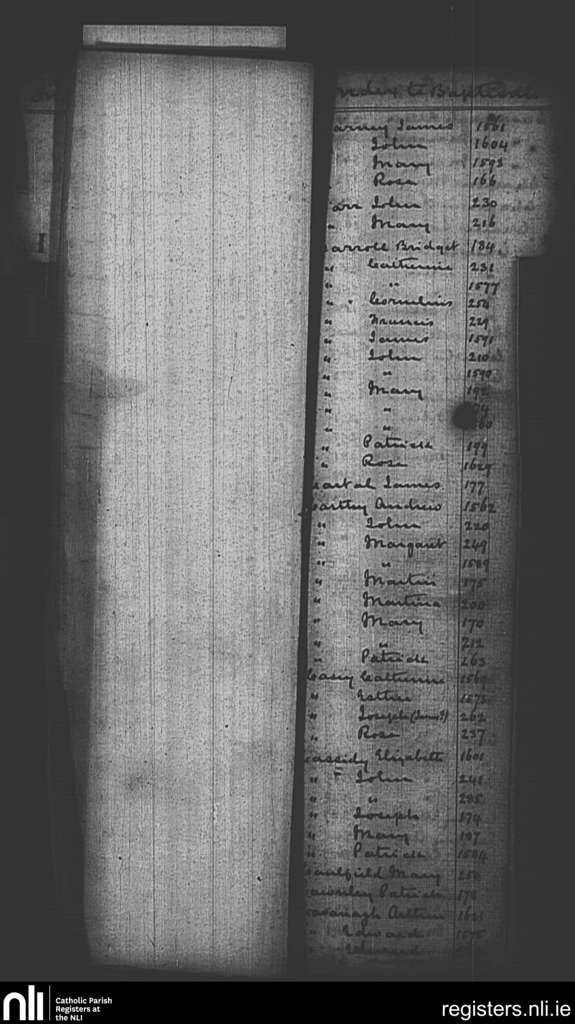 ndex to Baptisms
arney James 1561
John 1604
Mary 1593
Rose 166
arr John 230
" Mary 216
arroll Bridget 184
" Catherine 231
" " 1577
" Cornelius 250
" Francis 229
" James 1591
" John 210
" " 1590
" Mary
" "
" "
" Patrick 199
" Rose 1629
James 177
Carthy Andrew 1562
" John 220
" Margaret 249
" " 1589
" Martin 175
" Martina 200
" Mary 170
" " 212
" Patrick 263
Casey Catherine 1569
" Esther 1573
" Joseph (James?) 262
" Rose 237
Cassidy Elizabeth 1601
" John 241
" " 235
" Joseph 174
" Mary 187
" Patrick 1584
Caulfield Mary 250
Patrick 176
Cavanagh Arthur 1621
" Edward 1575
" Edward
nli Catholic Parish
Registers at
the NLI
registers.nli.ie